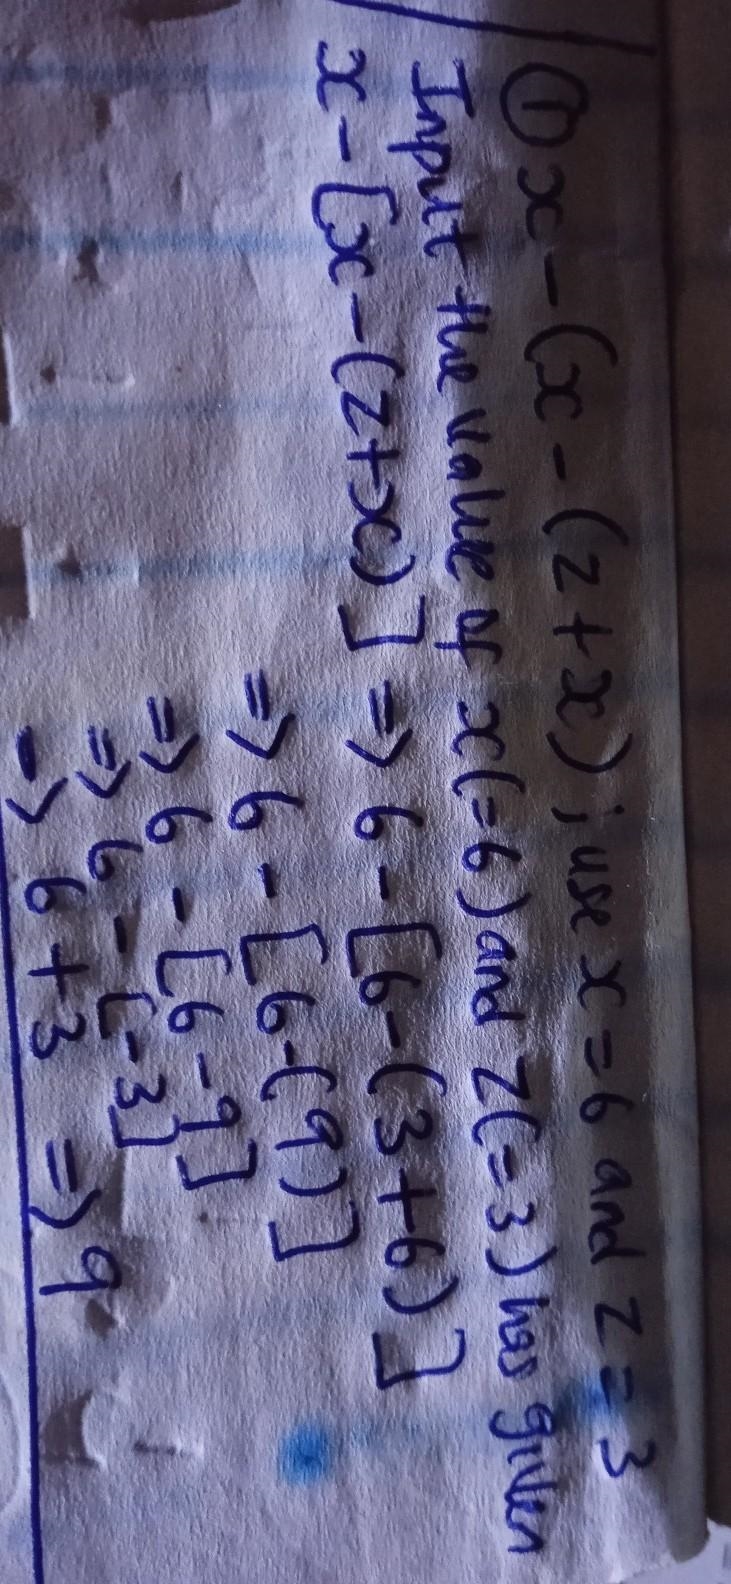 ① x - (x - (z + x) ; use x = 6 and z = 3
Input the value of x(=6) and z(=3) has given
x - [x - (z + x)] => 6 - [6 - (3 + 6)]
=> 6 - [6 - (9)]
=> 6 - [6 - 9]
=> 6 - [-3]
=> 6 + 3 => 9